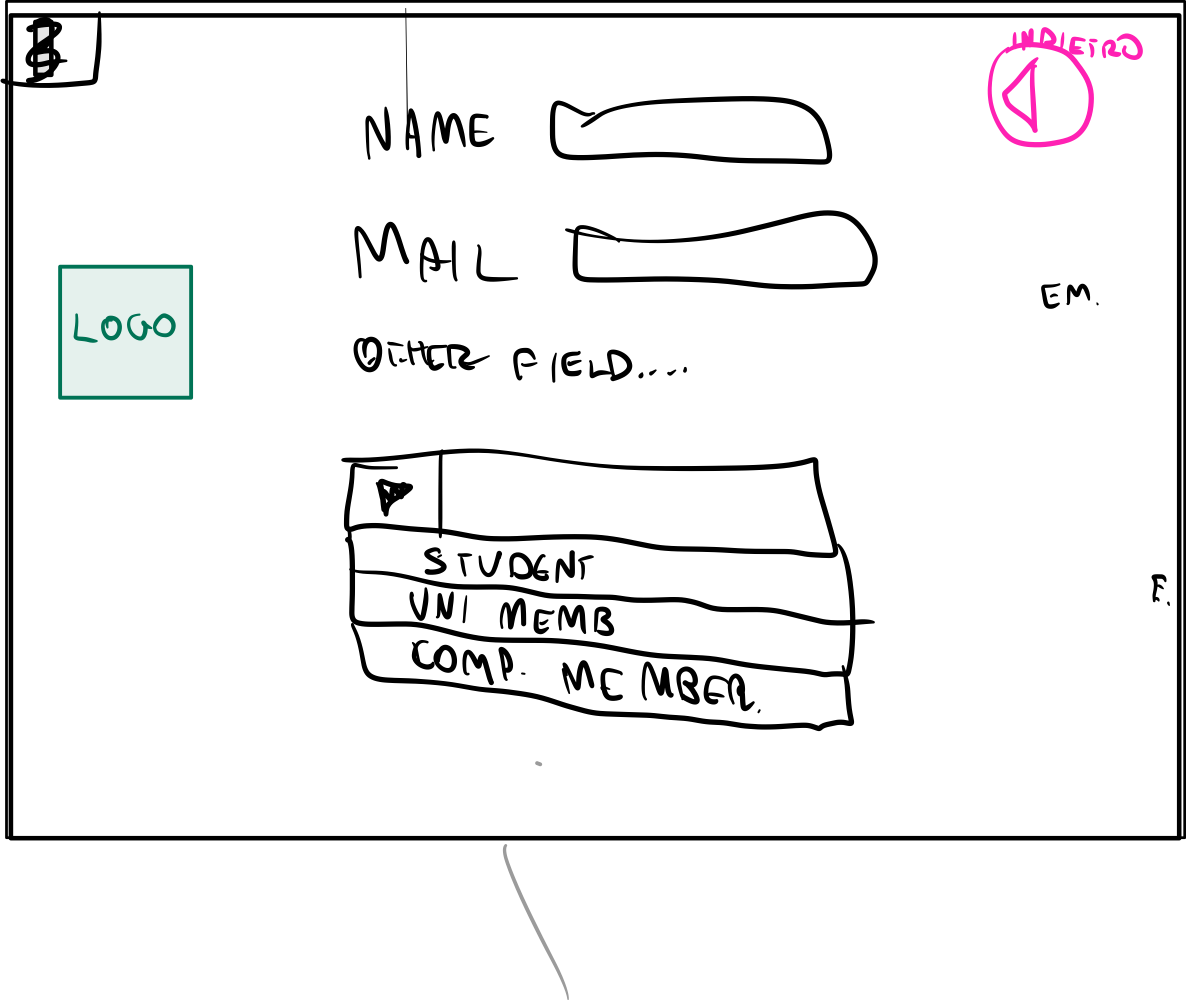 INDIETRO
NAME
MAIL
EM.
LOGO
OTHER FIELD....
STUDENT
UNI MEMB
E.
COMP. MEMBER.